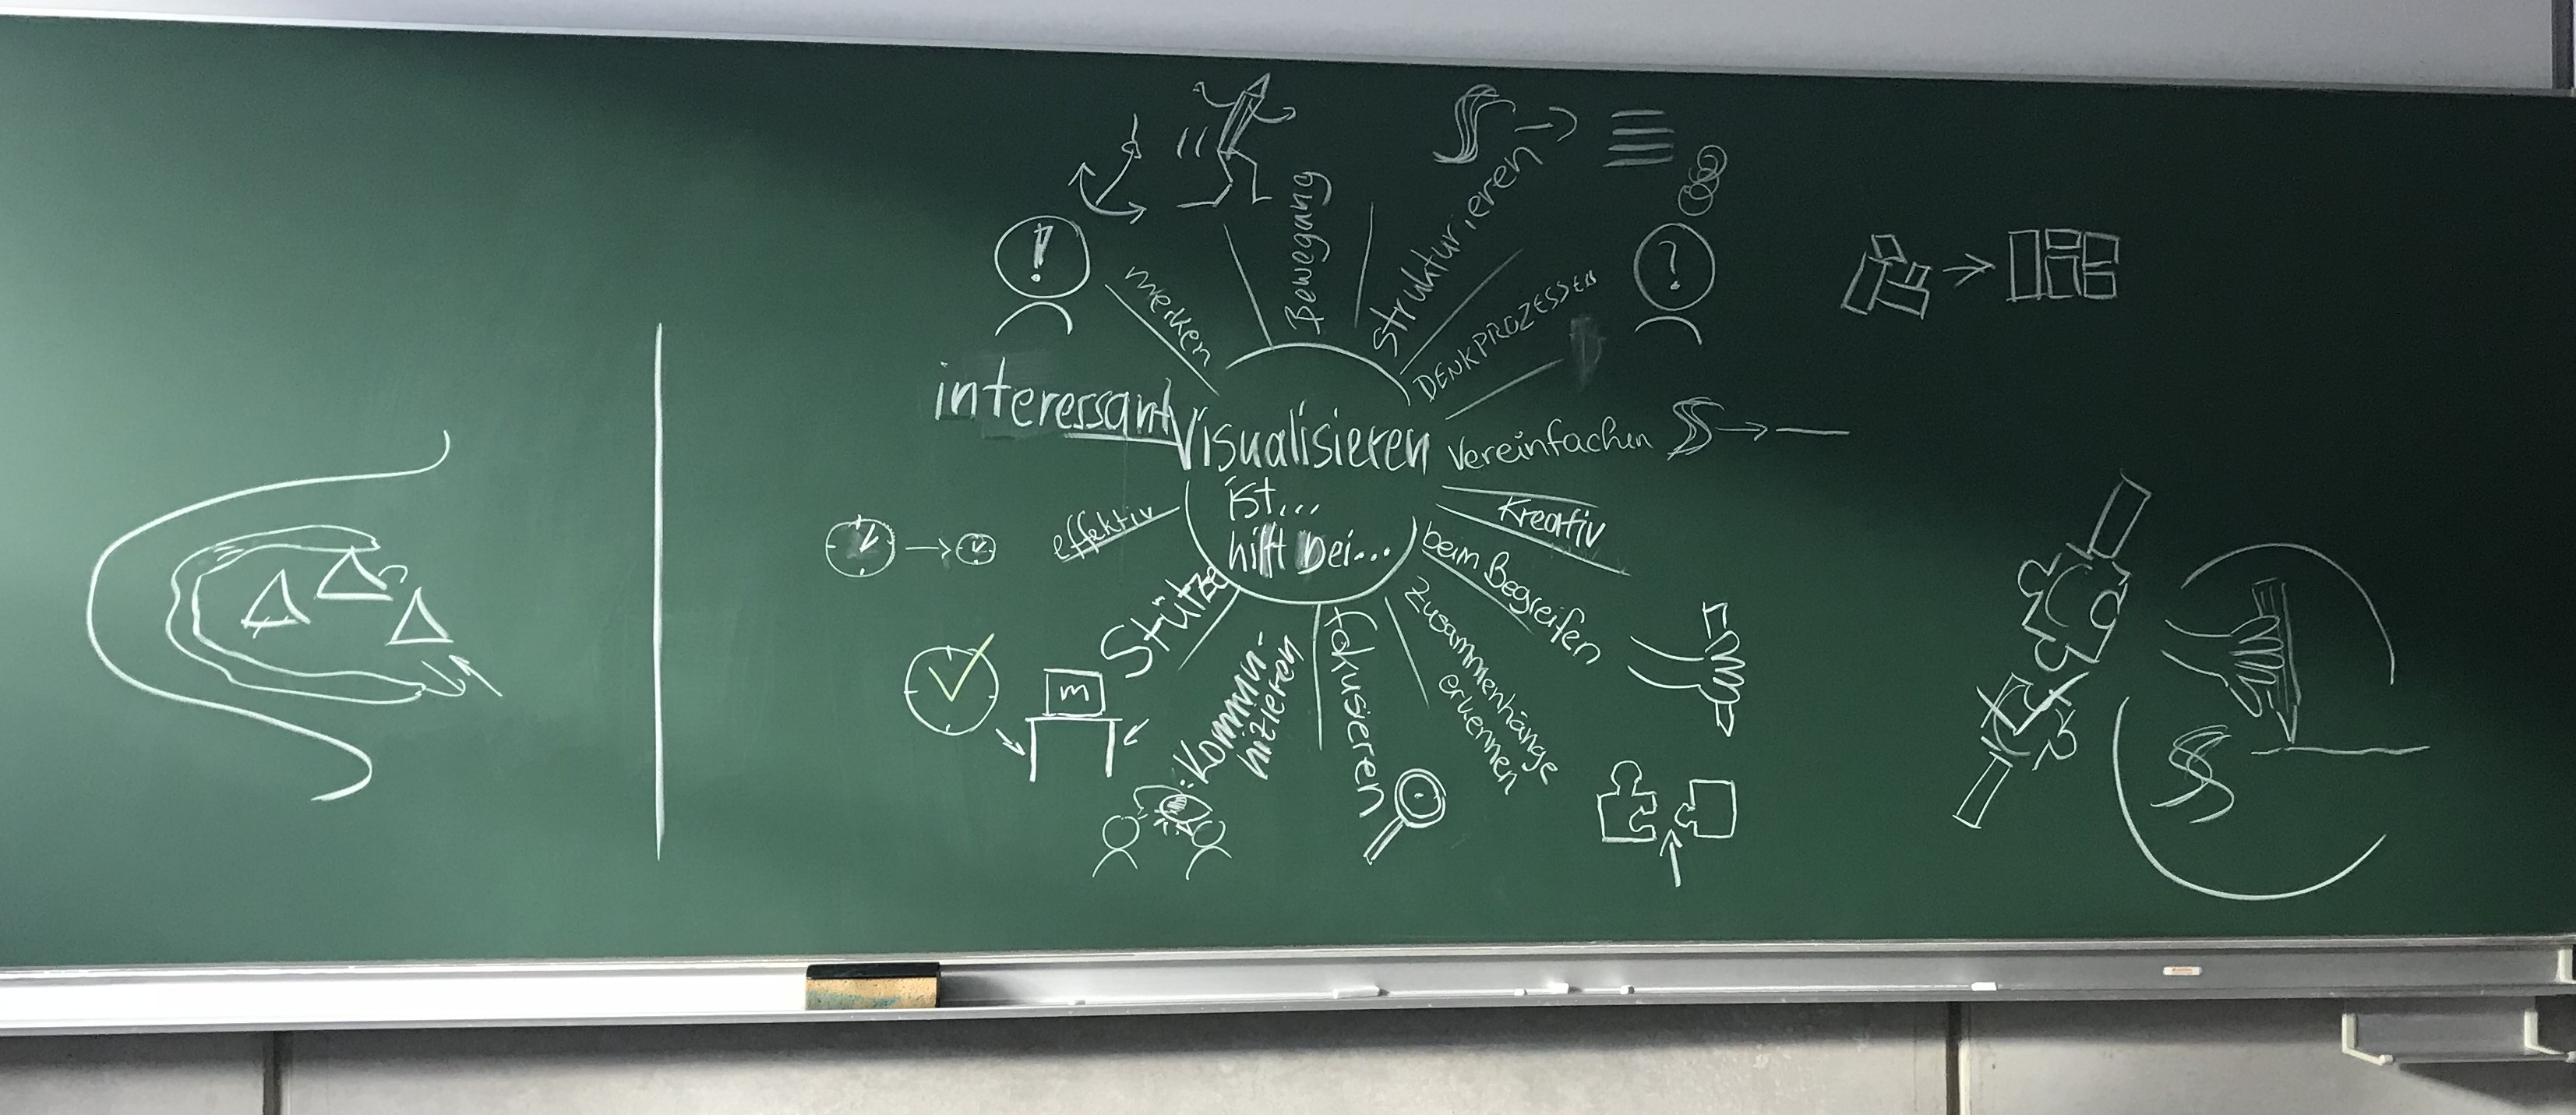 Visualisieren
ist...
hilft bei...
Bewegung
Strukturieren
DENKPROZESSEN
?
Vereinfachen
Kreativ
beim Begreifen
Zusammenhänge
erkennen
fokusieren
Kommu-
nizieren
Stütze
m
effektiv
interessant
merken
!